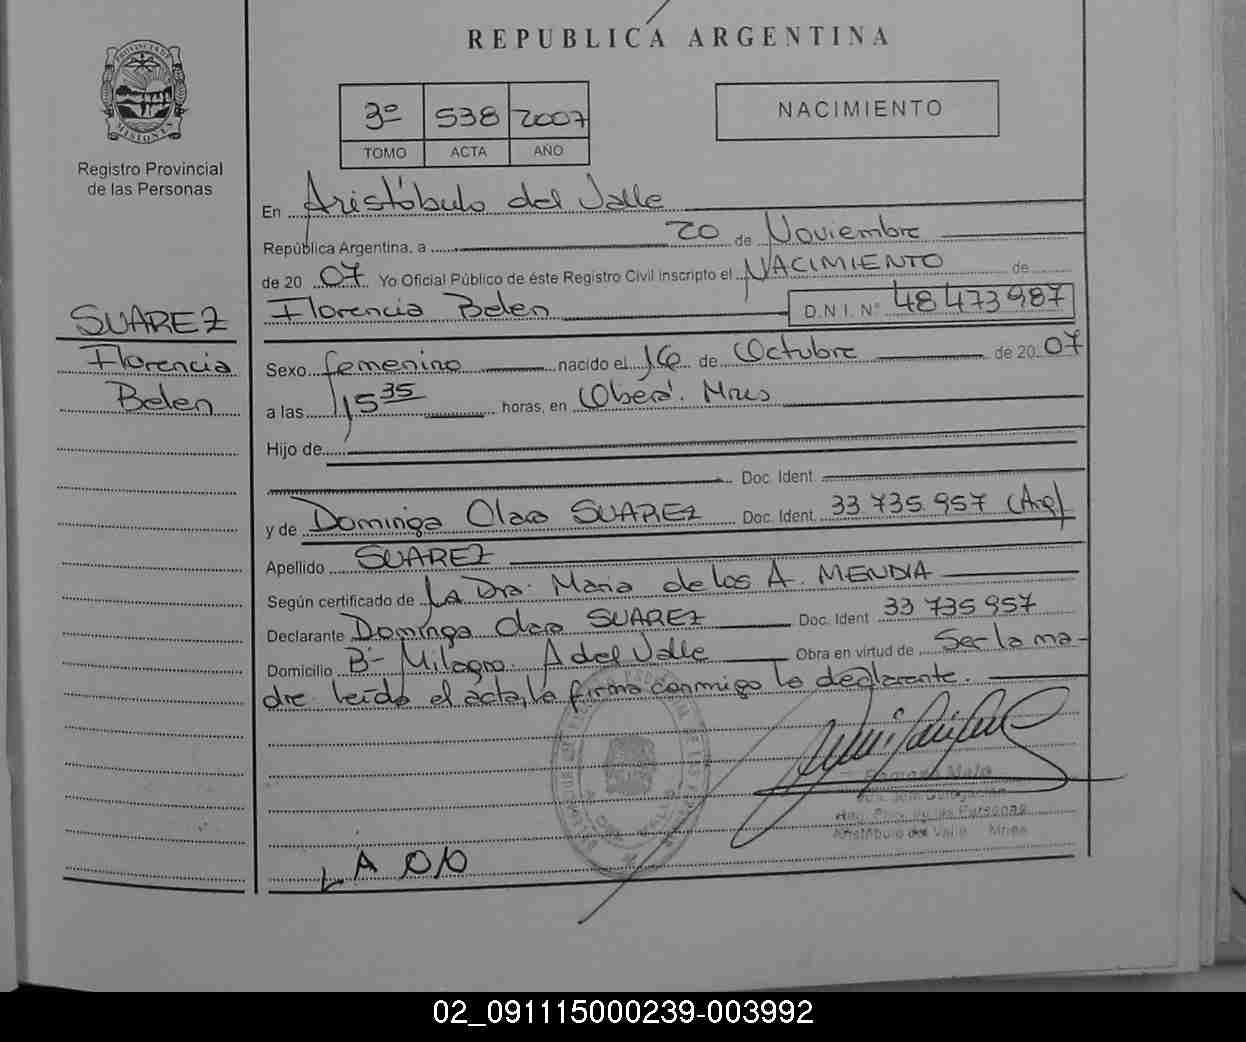 REPUBLICA ARGENTINA
PROVINCIA DE
MISIONES
Registro Provincial
de las Personas
3º 538 2007
TOMO ACTA AÑO
NACIMIENTO
En Aristóbulo del Valle
República Argentina, a 20 de Noviembre
de 20 07 Yo Oficial Público de éste Registro Civil inscripto el NACIMIENTO de
Florencia Belen D.N.I. Nº 48 473 987
SUAREZ
Florencia
Belen
Sexo femenino nacido el 16 de Octubre de 20 07
a las 15 35 horas, en Oberá. Mnes
Hijo de
Doc. Ident.
y de Dominga Clara SUAREZ Doc. Ident. 33 735 957 (Arg)
Apellido SUAREZ
Según certificado de LA Dra. Maria de los A. MENDIA
Declarante Dominga Clara SUAREZ Doc. Ident 33 735 957
Domicilio Bº Milagro. A del Valle Obra en virtud de Ser la ma-
dre leída el acta, la firma conmigo la declarante.
Reg. Prov. de las Personas
Aristóbulo del Valle Mnes
02_091115000239-003992